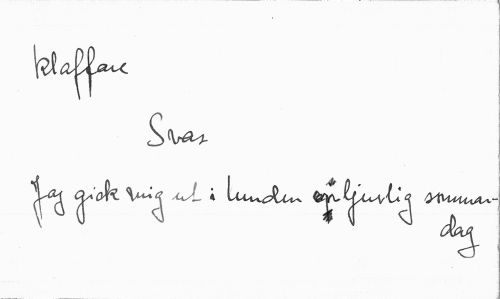 klaffare
Svar
Jag gick mig ut i lunden en ljuvlig sommar-
dag